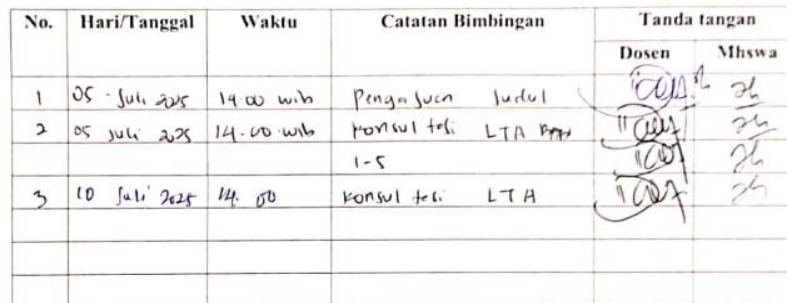 No. Hari/Tanggal Waktu Catatan Bimbingan Tanda tangan
Dosen Mhswa
1 05 Juli 2025 14.00 wib Pengajuan Judul
2 05 Juli 2025 14.00 wib Konsultasi LTA
1-5
3 10 Juli 2025 14.00 Konsultasi LTA